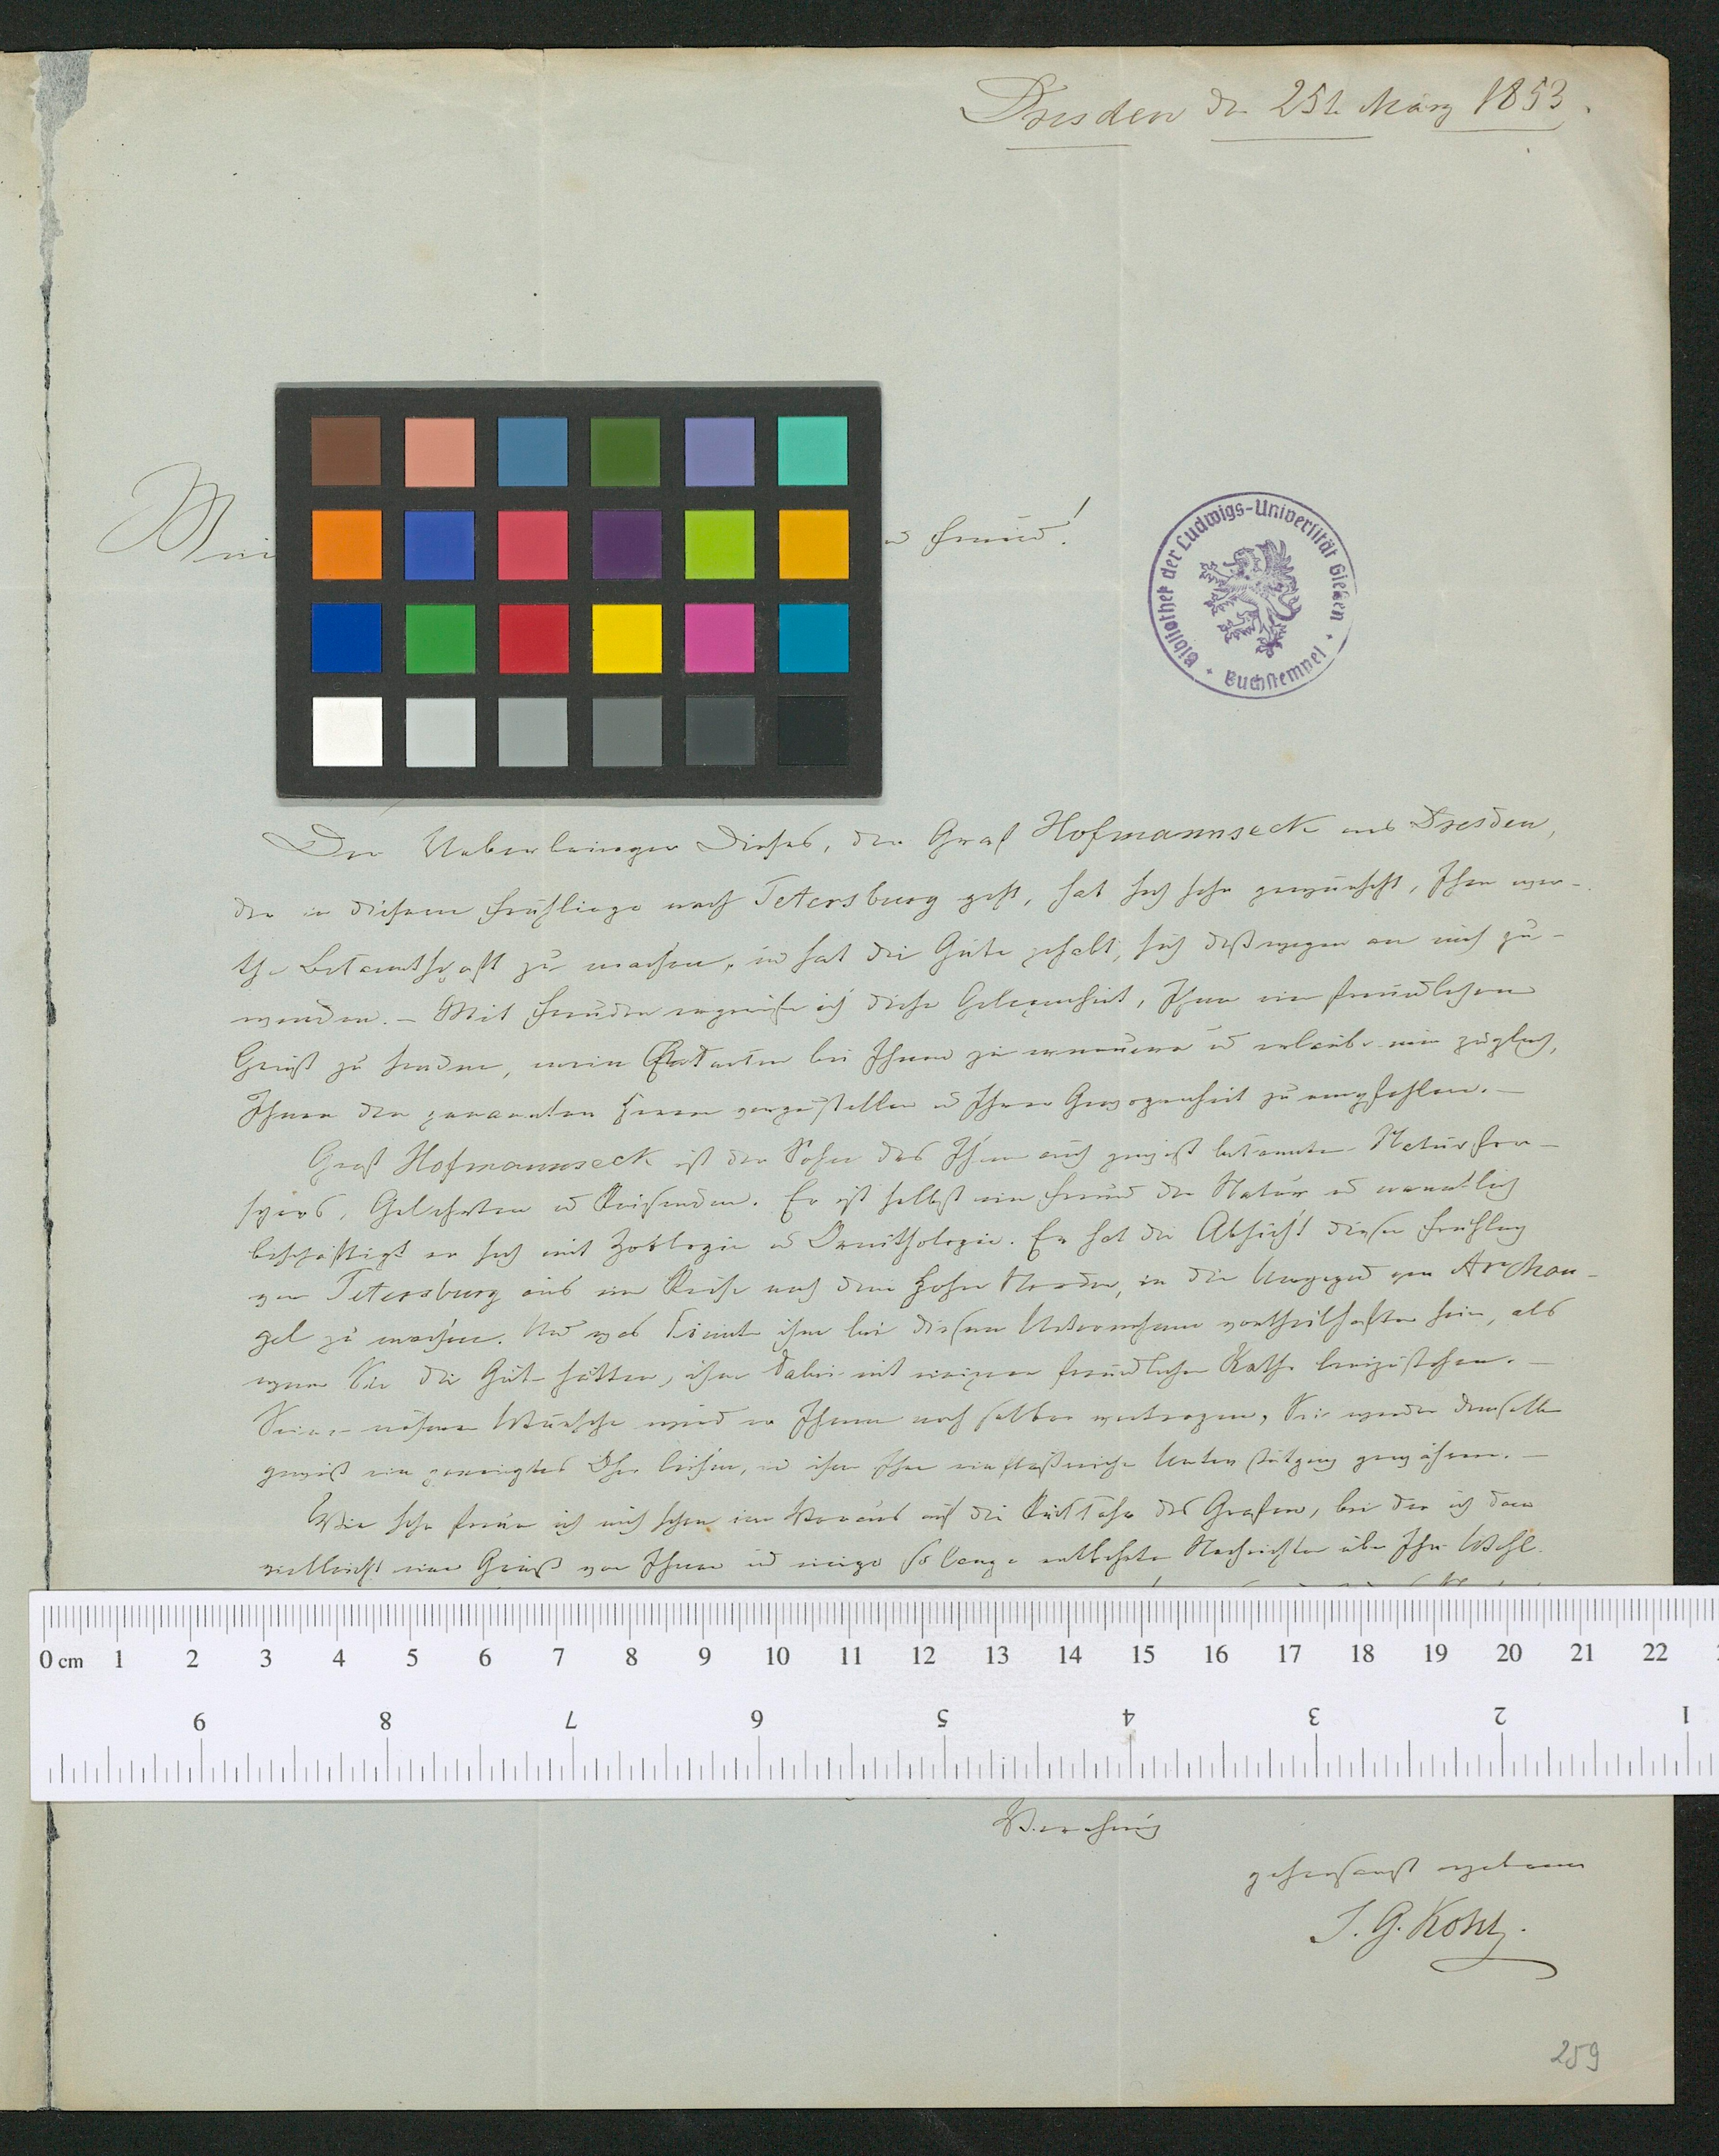 Dresden den 25t. März 1853.
Mein
Freund!
Bibliothek der Ludwigs-Universität Gießen
Buchstempel
Der Ueberbringer Dieses, der Graf Hofmannseck aus Dresden,
der in diesem Frühlinge nach Petersburg geht, hat sich sehr gewünscht, Ihre wer-
the Bekanntschaft zu machen, u hat die Güte gehabt, sich deßwegen an mich zu
wenden. – Mit Freuden ergreife ich diese Gelegenheit, Ihnen einen freundlichen
Gruß zu senden, mein Andenken bei Ihnen zu erneuern u erlaube mir zugleich,
Ihnen den genannten Herrn vorzustellen u Ihrer Gewogenheit zu empfehlen. –
Graf Hofmannseck ist der Sohn des Ihnen auch gewiß bekannten Naturfor-
schers, Gelehrten u Reisenden. Er ist selbst ein Freund der Natur u namentlich
beschäftigt er sich mit Zoologie u Ornithologie. Er hat die Absicht diesen Frühling
von Petersburg aus eine Reise nach dem hohen Norden, in die Umgegend von Archan-
gel zu machen. Und was könnte ihm bei diesem Unternehmen vortheilhafter sein, als
wenn Sie die Güte hätten, ihm dabei mit einigem freundlichen Rathe beizustehen. –
Seine nähern Wünsche wird er Ihnen noch selber vortragen, Sie werden demselben
gewiß ein geneigtes Ohr leihen, u ihm Ihre einflußreiche Unterstützung gewähren. –
Wie sehr freue ich mich schon im Voraus auf die Rückkehr des Grafen, bei der ich dann
vielleicht einen Gruß von Ihnen u einige so lange entbehrte Nachrichten über Ihr Wohl-
0 cm 1 2 3 4 5 6 7 8 9 10 11 12 13 14 15 16 17 18 19 20 21 22
9 8 7 6 5 4 3 2 1
Verehrung
gehorsamst ergebener
J. G. Kohl.
259